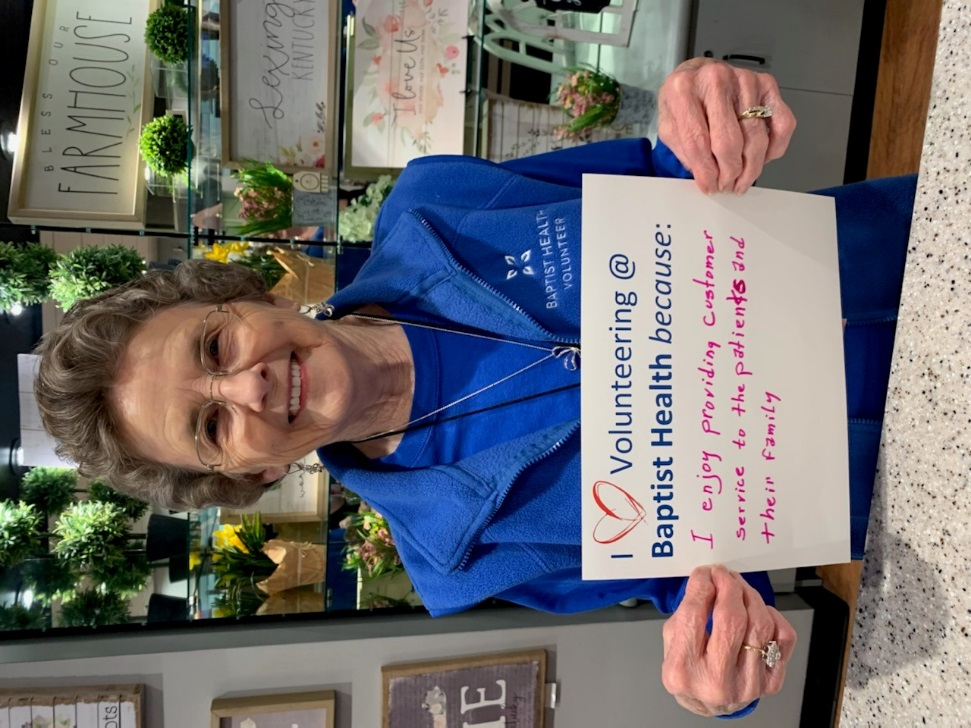 BLESS OUR
FARMHOUSE
Lexing
KENTUCKY
I love Us
BAPTIST HEALTH
VOLUNTEER
I Volunteering @
Baptist Health because:
I enjoy providing customer
service to the patients and
their family